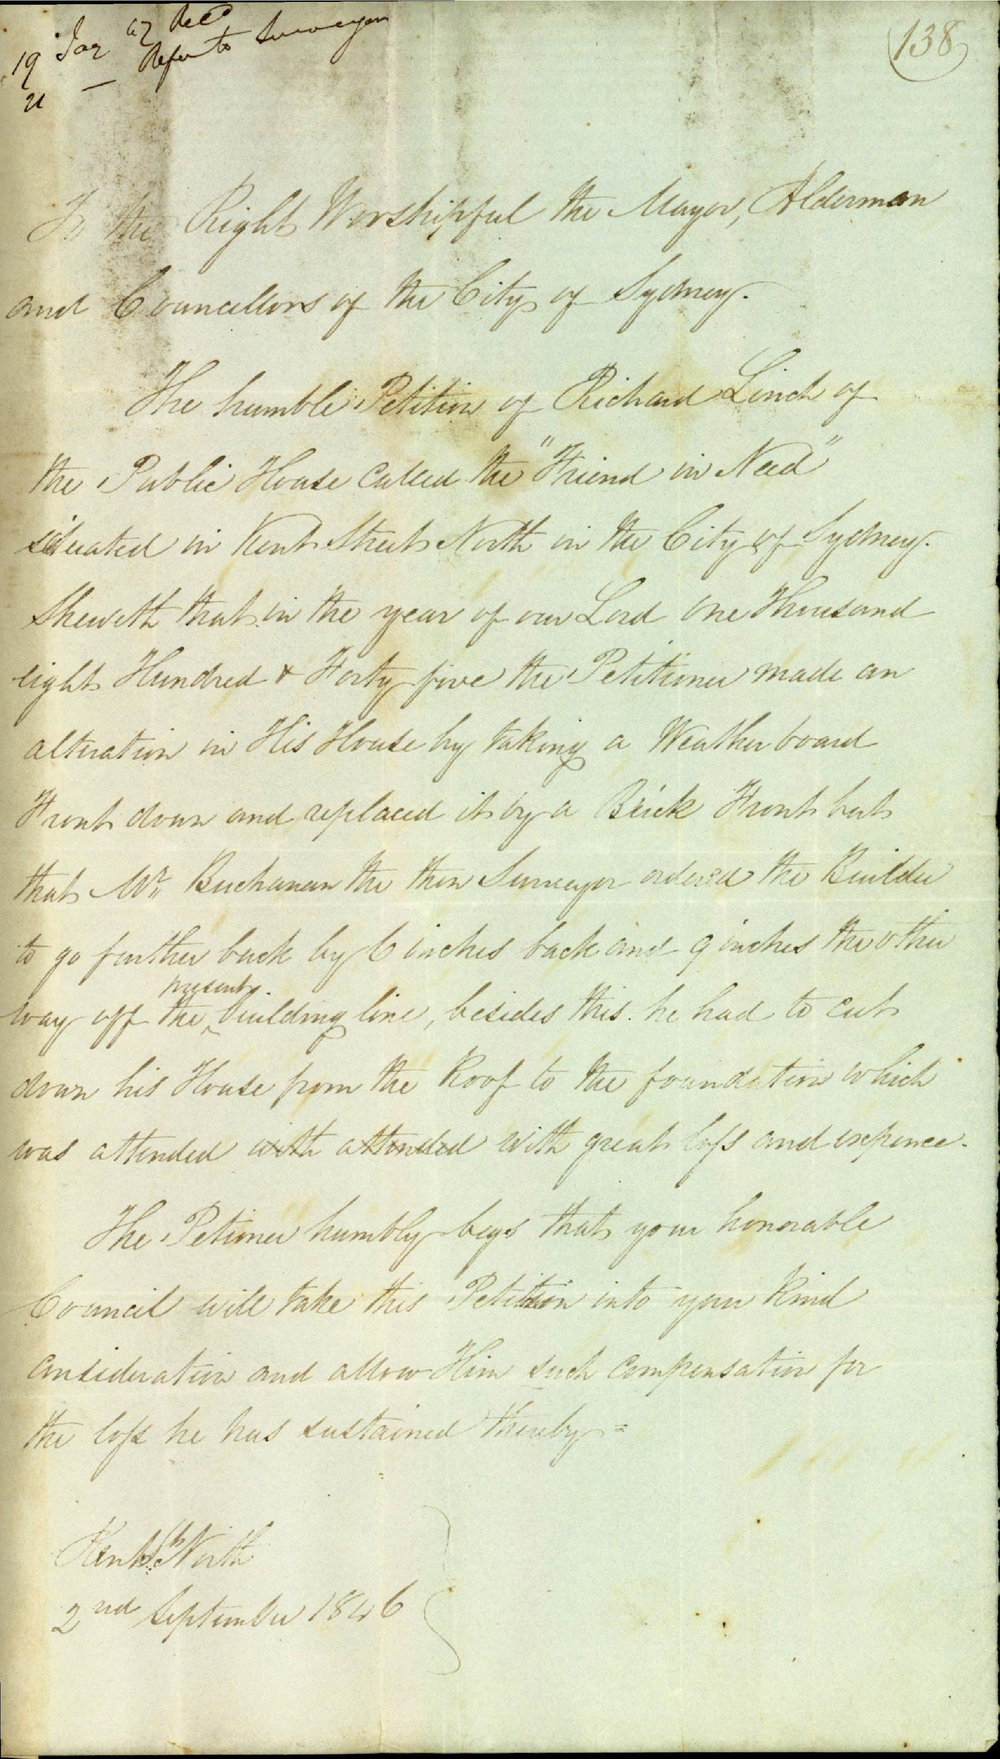 19 Jany 47 Recd
21 — Refer to Surveyor
138
To the Right Worshipful the Mayor, Alderman
and Councellors of the City of Sydney.
The humble Petition of Richard Linch of
the Public House called the "Friend in Need"
situated in Kent Street North in the City of Sydney.
Sheweth that in the year of our Lord One Thousand
eight Hundred & Forty five the Petitioner made an
alteration in His House by taking a Weatherboard
Front down and replaced it by a Brick Front but
that Mr. Buchanan the then Surveyor ordered the Builder
to go further back by 6 inches back and 9 inches the other
present
way off the building line, besides this he had to cut
down his House from the Roof to the foundation which
was attended with attended with great loss and expence.
The Petioner humbly begs that your honorable
Council will take this Petition into your kind
consideration and allow Him such compensation for
the loss he has sustained thereby =
Kent St North
2nd September 1846